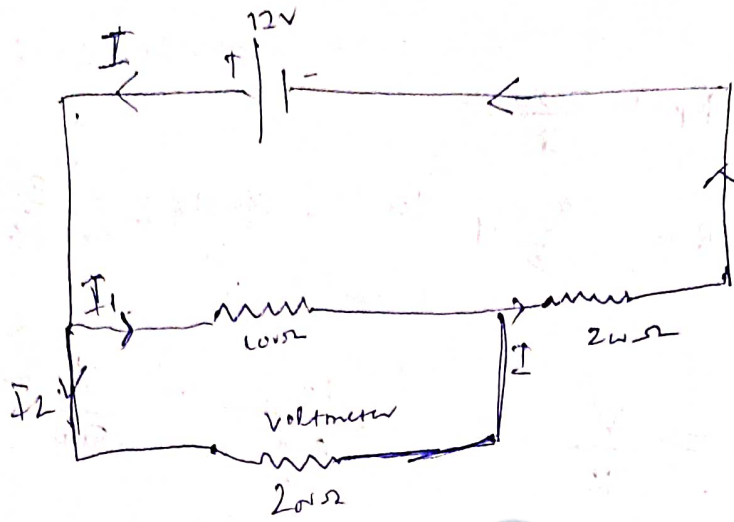 12V
I
+
-
I1
100Ω
I
200Ω
I2
Voltmeter
200Ω